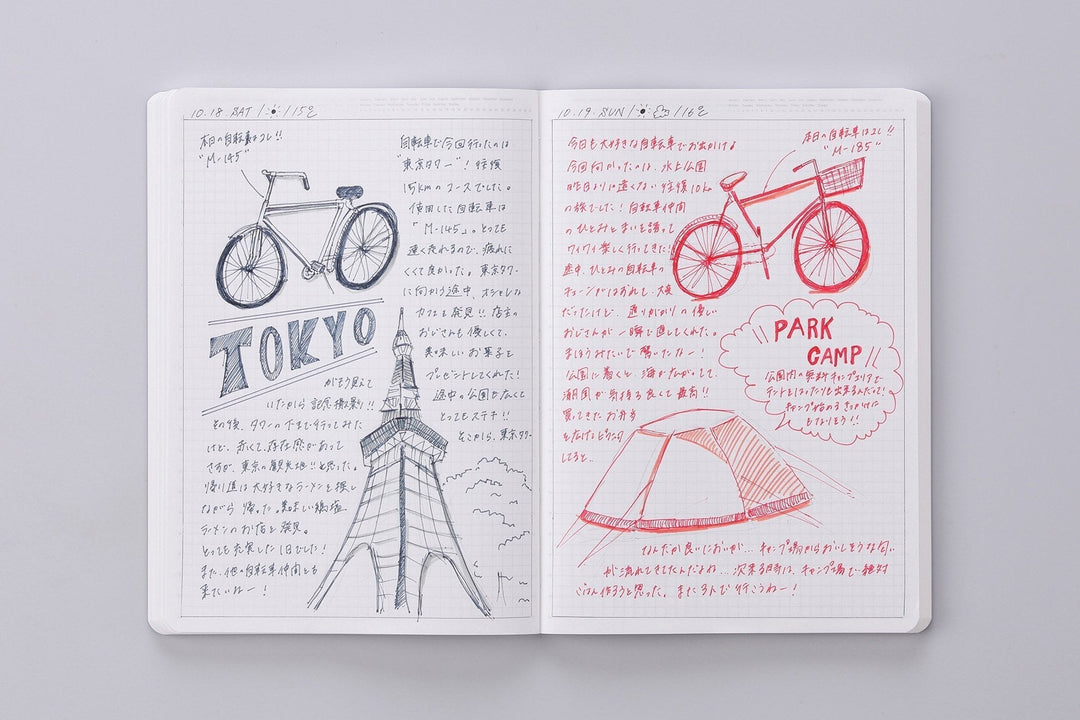 10.18. SAT / / 15℃
本日の自転車はコレ!!
"M-145"
自転車で今回行ったのは
"東京タワー"! 往復
15kmのコースでした。
使用した自転車は
「M-145」。とっても
速く走れるので、疲れに
くくて良かった。東京タワー
に向かう途中、オシャレな
カフェも発見!! 店主の
おじさんも優しくて、
美味しいお菓子を
プレゼントしてくれた!
途中の公園もなくとも
とってもステキ!!
そこから、東京タワー
TOKYO
がもう見えて
いたから 記念撮影!!
その後、タワーの下まで行ってみた
けど、赤くて、存在感があって
さすが、東京の観光地!!と思った。
帰り道は大好きなラーメンを探し
ながら 帰った。美味しい
ラーメンのお店を発見。
とっても充実した1日でした!
また、他の自転車仲間とも
来たいねー!
10.19. SUN / / 16℃
今日も大好きな自転車でお出かけ♪
今回向かったのは、水上公園
昨日よりは遠くない往復10km
の旅でした! 自転車仲間
のひとみとまいを誘って
ワイワイ楽しく行ってきた!
途中、ひとみの自転車の
チェーンがはずれし、大変
だったけど、通りがかりの優しい
おじさんが一瞬で直してくれた。
まほうみたいで驚いたなー!
公園に着くと、海がながってて、
潮風が気持ち良くて最高!!
買ってきたお弁当
を広げピクニック
してると…
本日の自転車はコレ!!
"M-185"
PARK
CAMP
公園内の無料キャンプエリアで
テントをはったりも出来るんだって!
キャンプ始めるきっかけに
もなりそう!!
なんだか良いにおいが… キャンプ場からおいしそうな匂い
が流れてきてたんだよね… 次来る時は、キャンプ場で絶対
ごはん作ろうと思った。また3人で行こうねー!